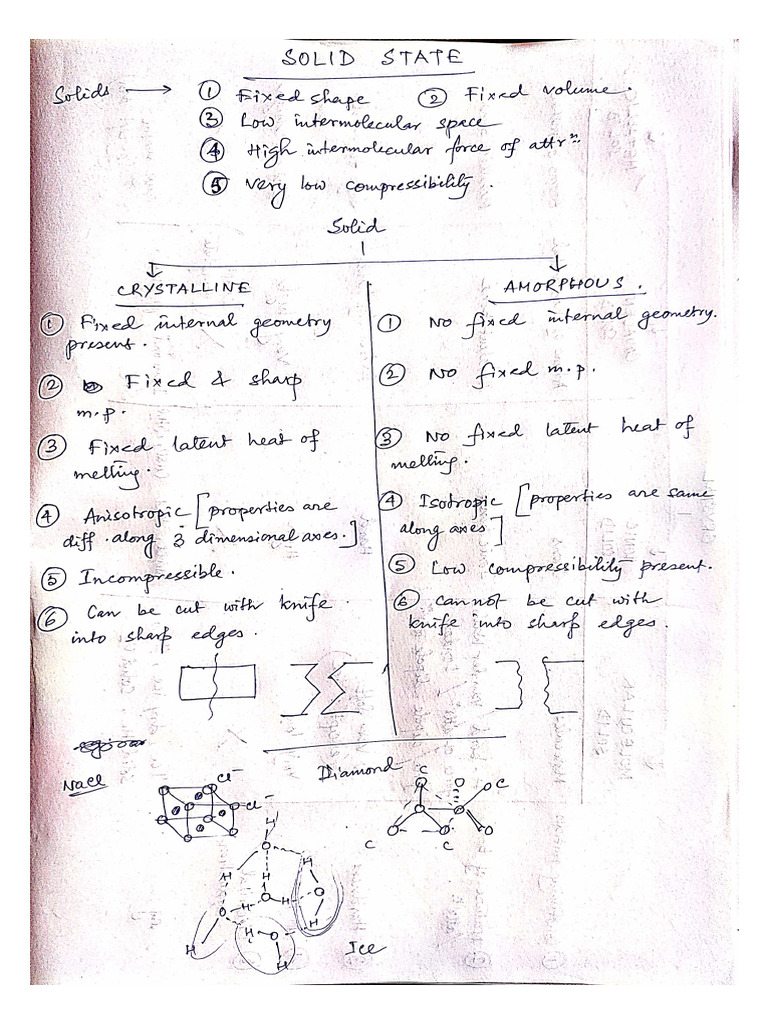 SOLID STATE
Solids → ① Fixed shape ② Fixed volume.
③ Low intermolecular space
④ High intermolecular force of attrⁿ.
⑤ Very low compressibility.
Solid
CRYSTALLINE
① Fixed internal geometry
present.
② Fixed & sharp
m.p.
③ Fixed latent heat of
melting.
④ Anisotropic [properties are
diff. along 3 dimensional axes.]
⑤ Incompressible.
⑥ Can be cut with knife
into sharp edges.
AMORPHOUS.
① No fixed internal geometry.
② No fixed m.p.
③ No fixed latent heat of
melting.
④ Isotropic [properties are same
along axes]
⑤ Low compressibility present.
⑥ Cannot be cut with
knife into sharp edges.
NaCl
Cl⁻
Cl⁻
Diamond
C
C
C
C
H
O
H
H
H
O
O
H
H
O
H
H
O
H
H
Ice